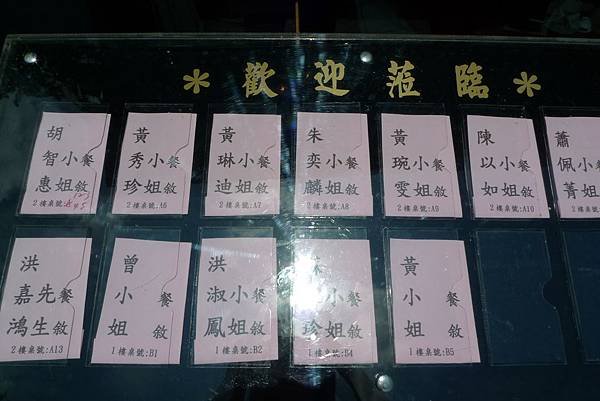 ＊歡迎蒞臨＊
胡智惠小姐餐敘
2樓桌號:
黃秀珍小姐餐敘
2樓桌號:A6
黃琳迪小姐餐敘
2樓桌號:A7
朱奕麟小姐餐敘
2樓桌號:A8
黃琬雯小姐餐敘
2樓桌號:A9
陳以如小姐餐敘
2樓桌號:A10
蕭佩菁小姐
2樓桌號:A
洪嘉鴻先生餐敘
2樓桌號:A13
曾小姐餐敘
1樓桌號:B1
洪淑鳳小姐餐敘
1樓桌號:B2
珍小姐餐敘
1樓桌號:B4
黃小姐餐敘
1樓桌號:B5